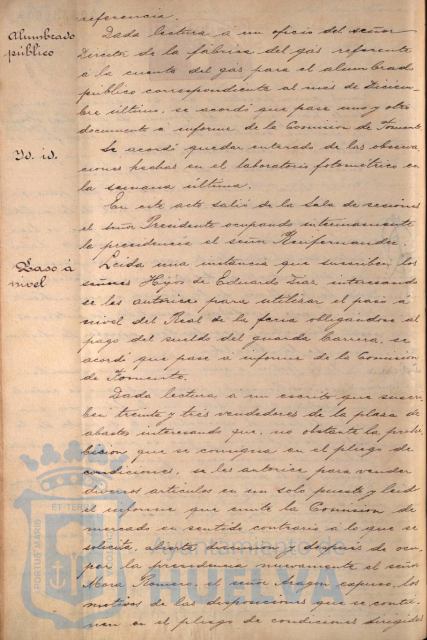 referencia.
Alumbrado
público
Dada lectura a un oficio del señor
Director de la fábrica del gas referente
a la cuenta del gas para el alumbrado
público correspondiente al mes de Diciem-
bre último, se acordó que pase uno y otro
documento a informe de la Comision de Fomento.
Yd. id.
Se acordó quedar enterado de las observa
ciones hechas en el laboratorio fotométrico en
la semana última.
En este acto salió de la Sala de sesiones
el señor Presidente ocupando interinamente
la presidencia el señor
Paso á
nivel
Leida una instancia que suscriben los
señores Hijos de Eduardo Diaz interesando
se les autorice para utilizar el paso á
nivel del Real de la feria obligándose al
pago del sueldo del guarda barrera, se
acordó que pase á informe de la Comision
de Fomento.
Dada lectura a un escrito que suscri-
ben treinta y tres vendedores de la plaza de
abastos interesando que, no obstante la prohi-
bicion que se consigna en el pliego de
condiciones, se les autorice para vender
diversos articulos en un solo puesto y leido
el informe que emite la Comision de
mercado en sentido contrario a lo que se
solicita, abierta discusion y despues de ocu-
par la presidencia nuevamente el señor
Mora Romero, el señor Aragon expuso los
motivos de las disposiciones que se contie-
nen en el pliego de condiciones
PORTUS MARIS
ET TERR
Ayuntamiento de
HUELVA